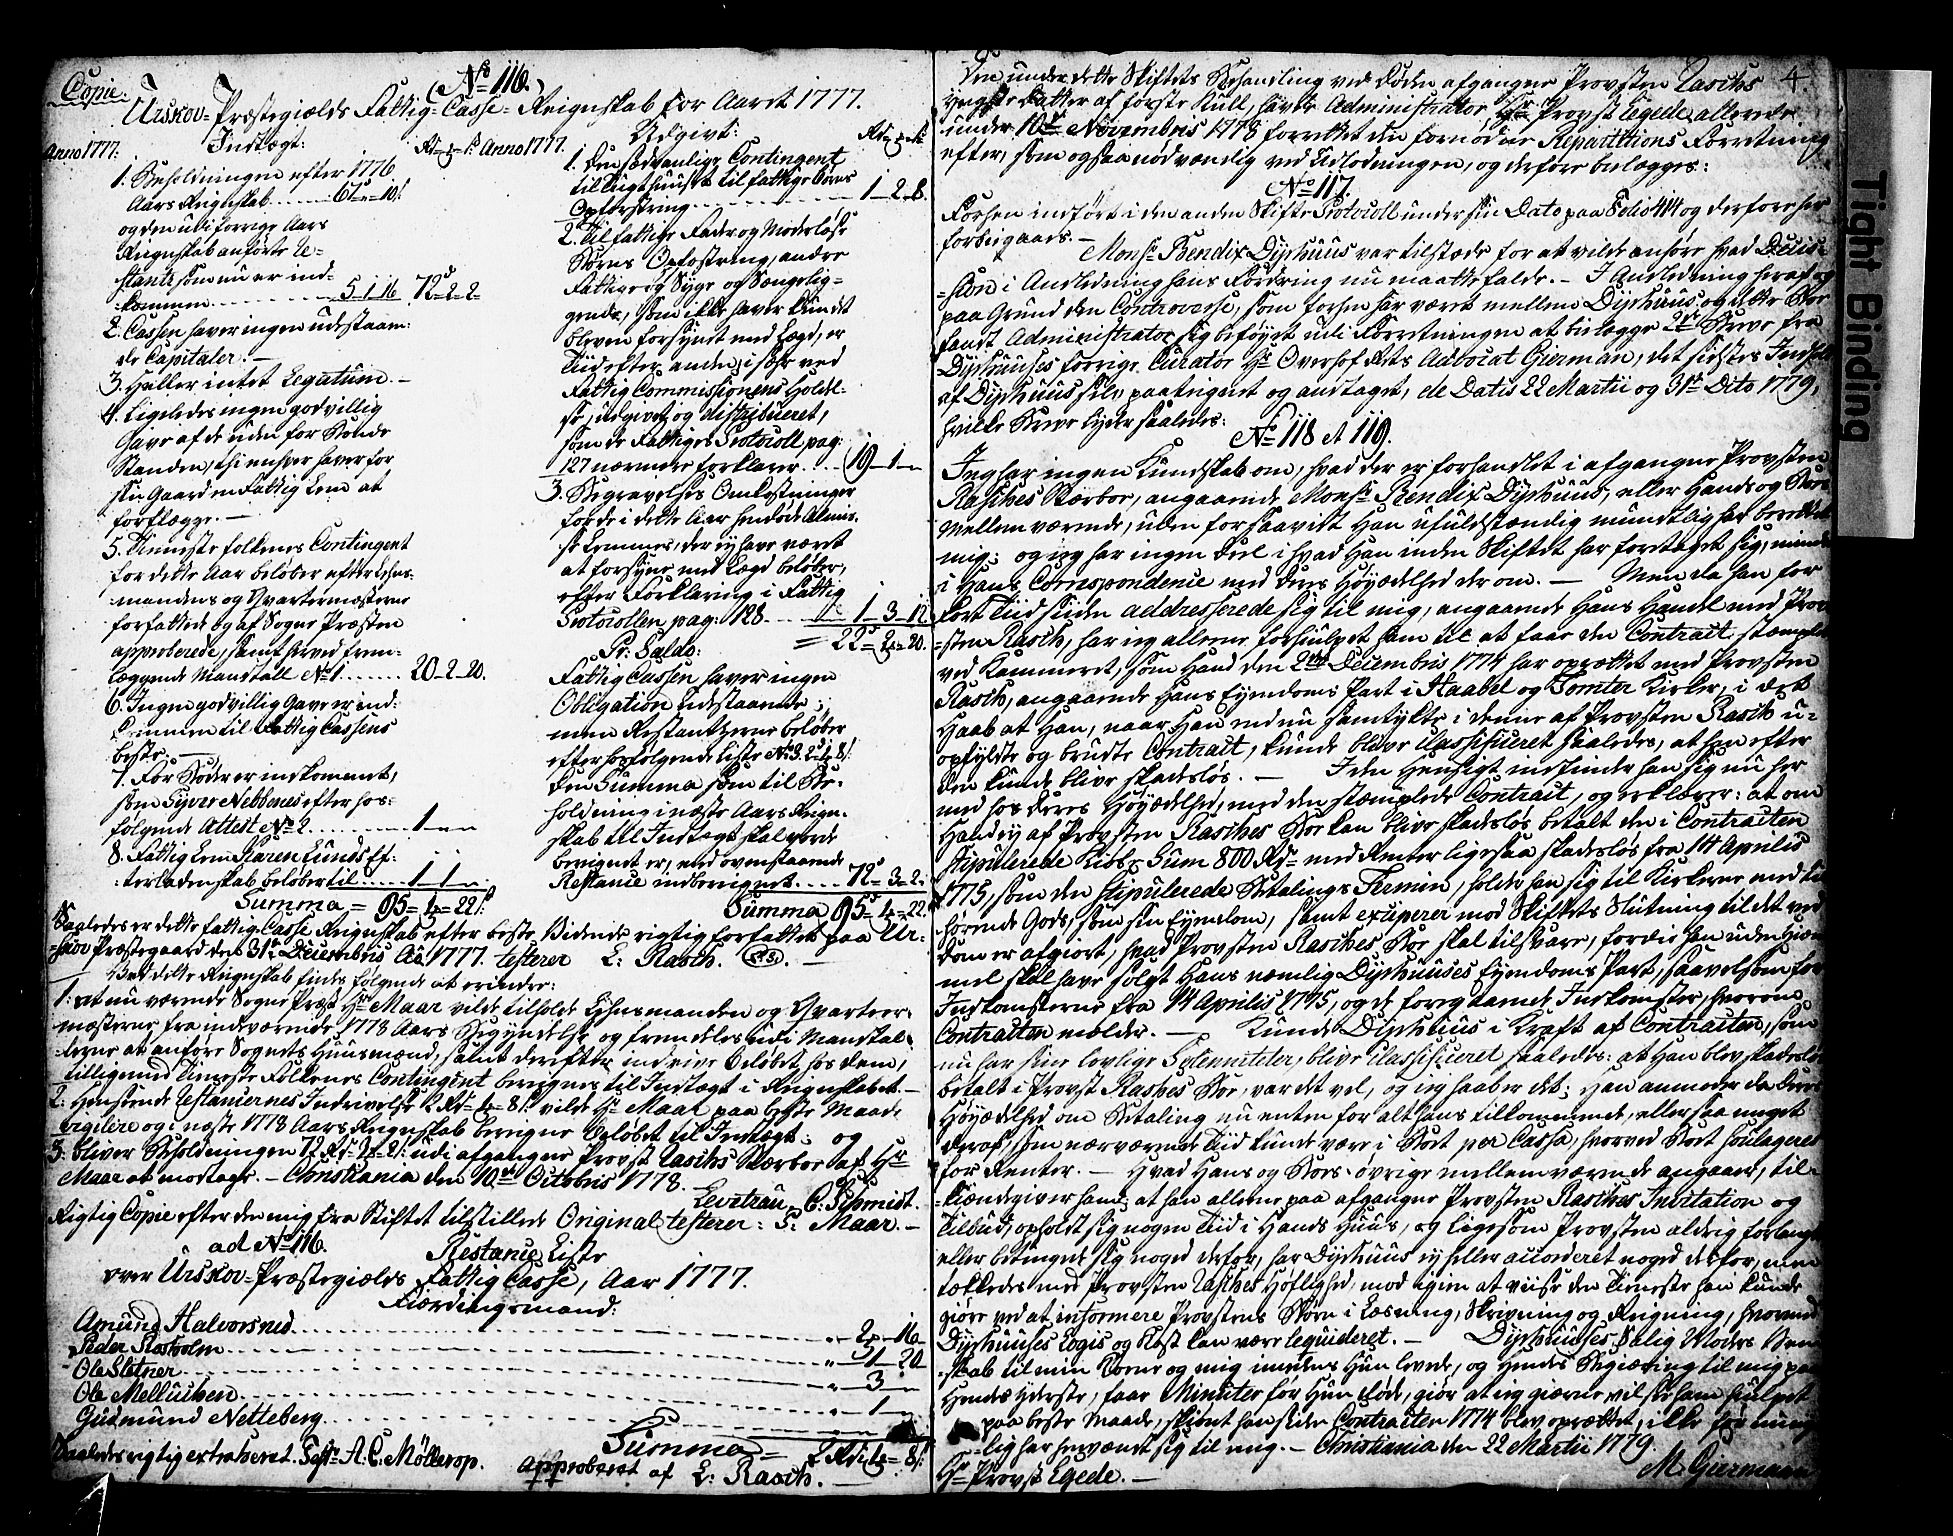 Copie.
(No 116.)
Urskov-Præstegiælds Fattig-Casse-Reignskab for Aaret 1777.
Anno 1777.
Indtægt:
Rd - s
1. Beholdningen efter 1776
Aars Reignskab ...... 67 - " - 10
og den udi forrige Aars
Reignskab anførte Re-
stantz som nu er ind-
kommen ........ 5 - 1 - 16 72 - 2 - 2
2. Cassen haver ingen udestaaen-
de Capitaler. —
3. Heller intet Legatum. —
4. Ligeledes ingen godvillig
Gave af de uden for Bonde
Standen, thi enhver haver for
sin Gaard en Fattig Lem at
forflægge. —
5. Tieneste folkenes Contingent
for dette Aar beløber efter Lehns-
mandens og Qvartermesterne
forfattede og af Sogne Præsten
approberede, samt herved frem-
læggende Mandtall No 1 ...... 20 - 2 - 20.
6. Ingen godvillig Gave er ind-
kommen til Fattig Cassens
beste. —
7. For Bøder er indkommet,
som Syver Nebbenes efter hos-
følgende Attest No 2 ........ 1 - " - "
8. Fattig Lem Karen Lunds Ef-
terladenskab beløber til ..... 1 - 1 - "
Summa = 95 = 4 = 22
Anno 1777.
Udgivt:
Rd - s
1. Den sædvanlige Contingent
til Tugthuuset til fattige Børns
Opfostring ........ 1 - 2 - 8.
2. Til fattige Fader og Moderløse
Børns Opfostring, andre
Fattige og Syge og Sengelig-
gende, som ikke haver kundet
bleven forsynt med Lægd, er
Tiid efter anden, i sær ved
Fattig Commissionens Holdel-
se, udgivet og distribueret,
som de Fattiges Protocoll pag:
127 nærmere forklarer .... 19 - 1 - "
3. Begravelses Omkostninger
for de i dette Aar hendøde Almis-
se Lemmer, der ey have været
at forsyne med Lægd beløber,
efter Forklaring i Fattig
Protocollen pag: 128 ...... 1 - 3 - 12
= 22 = " = 20.
Pr: Saldo:
Fattig Cassen haver ingen
Obligation Udestaaende;
men Restantzerne beløber
efter hosfølgende Liste No 3. 2 - 4 - 8
Den Summa som til Be-
holdning i næste Aars Reign-
skab til Indtægt skal vorde
bereignet er, med ovenstaaende
Restance indbereignet ..... 72 = 3 = 2.
Summa 95 = 4 = 22.
Saaledes er dette fattig Casse Reignskab efter beste Vidende rigtig forfattet paa Ur-
skov Præstegaard den 31te Decembris Ao 1777. testerer L: Rasch. (L.S.) —
Ved dette Reignskab findes følgende at erindre:
1: at nu værende Sogne Præst Hr Maar vilde tilholde Lehnsmanden og Qvarteer-
mesterne fra indeværende 1778 Aars Begyndelse og fremdeles udi Mandtal-
lerne at anføre Sognets Huusmænd, samt derefter indrive Beløbet hos dem,
tilligemed Tieneste Folkenes Contingent bereignes til Indtægt i Reignskabet. —
2: Henstaaende Restancernes Indrivelse 2 Rd - 4 - 8 vilde Hr Maar paa beste Maade
vigilere og i næste 1778 Aars Reignskab bereigne Beløbet til Indtægt; og
3: bliver Beholdningen 72 Rd - 3 - 2 udi afgangne Provst Raschs Stærboe af Hr
Maar at modtage. — Christiania den 10de Octobris 1778.
Levetzau. C: Schmidt.
Rigtig Copie efter den mig fra Stiftet tilstillede Original testerer: P: Maar. —
ad No 116.
Restance Liste
over Urskov-Præstegiælds Fattig Casse, Aar 1777.
Fierdingsmænd:
Amund Halvorsrud ............ " - 2 - 16
Peder Rosholm ............ " - 1 - 20
Ole Sletner ............ " - 3 - "
Ole Mellushen ............ " - 1 - "
Gudmund Netteberg ............
Summa = 2 Rd 4 = 8
Saaledes rigtig extraheret. Test: A. C. Møllerop. approberet af L: Rasch. —
4.
Den under dette Skiftets Behandling ved Døden afgangne Provsten Raschs
yngste Datter af første Kull, haver Administrator Hr Provst Egede allerede
under 10de Novembris 1778 forrettet den fornødne Repartitions Forretning
efter, som ogsaa nødvendig ved Udlodningen, og derfore bilægges:
No 117.
Forhen indført i den anden Skifte Protocoll under sin Dato paa Folio 414 og derfore her
forbigaaes. —
Monsr Bendix Dyrhuus var tilstæde for at vilde anhøre hvad Decis-
sion i Anledning hans Fordring nu maatte falde. — I Anledning heraf og
paa Grund den Controverse, som forhen har været mellem Dyrhuus og dette Boe
fandt Administrator sig beføyet udi Forretningen at bilægge 2de Breve fra
Dyrhuuses forrige Curator Hr Overhof Rets Advocat Gierman, det sidstes Indhold
af Dyrhuus selv paategnet og andtaget, de Datis 22 Martii og 31te Dito 1779,
hvilke Breve lyder saaledes:
No 118 et 119.
Jeg har ingen Kundskab om, hvad der er forhandlet i afgangne Provsten
Rasches Stærboe, angaaende Monsr Bendix Dyrhuus, eller Hands og Boets
mellemværende, uden forsaavidt Han ufuldstændig mundtlig har berettet
mig; og jeg har ingen Deel i hvad Han inden Skiftet har foretaget sig, mindre
i Hans Correspondence med Deres Høyædelhed derom. — Men da han for
kort Tiid siden addresserede sig til mig, angaaende Hans Handel med Prov-
sten Rasch, har jeg allene forhiulpet ham til at faae den Contract stemplet
ved Kammeret, som Hand den 2den Decembris 1774 har oprettet med Provsten
Rasch, angaaende Hans Eyendoms Part i Haabel og Tomter Kirker, i det
Haab at Han, naar Han end nu samtykte i denne af Provsten Rasch u-
opfyldte og brudte Contract, kunde blive classificeret saaledes, at han efter
den kunde blive skadesløs. — I den Hensigt indfinder han sig nu her
med hos Deres Høyædelhed, med den stemplede Contract, og erklærer: at om
Hand ey af Provsten Rasches Boe kan blive skadesløs betalt den i Contracten
stipulerede Kiøbe Sum 800 Rd med Renter ligesaa skadesløs fra 14 Aprilis
1775, som den stipulerede Betalings Termin, holder han sig til Kirkerne med til-
hørende Gods, som sin Eyendom, samt exciperer mod Skiftets Slutning til det ved
Dom er afgiort, hvad Provsten Rasches Boe skal tilsvare, fordie han uden Hiem-
mel skal have solgt Hans nemlig Dyrhuuses Eyendoms Part, saavelsom for
Indkomsterne fra 14 Aprilis 1775, og de foregaaende Indkomster, hvorom
Contracten melder. — Kunde Dyrhuus i Kraft af Contracten, som
nu har sine lovlige Solenniteter, blive classificeret saaledes: at Han blev skadesløs
betalt i Provst Rasches Boe, var det vel, og jeg haaber det; Han anmoder da Deres
Høyædelhed om Betaling nu enten for alt hans tilkommende, eller saa meget
deraf, som nærværende Tiid kunde være i Boet per Cassa, hvorved Boet soulageret
for Renter. — Hvad Hans og Boets øvrige mellemværende angaaer, til-
kiendegiver hand; at han allene paa afgangne Provsten Rasches Invitation og
Tilbud, opholdt sig nogen Tiid i Hands Huus, og ligesom Provsten aldrig forlangte
eller betingede sig noget derfor, har Dyrhuus ey heller accorderet noget derfor, men
takkede med Provsten Rasches Høflighed, mod igien at viise den Tieneste han kunde
giøre ved at informere Provstens Børn i Læsning, Skrivning og Reigning, hvorved
Dyrhuuses Logis og Kost kan være leqvideret. — Dyrhuuses Salig Moders Ven-
skab til min Kone og mig imedens Hun levede, og Hendes Begiæring til mig paa
Hendes yderste, faae Minuter før Hun døde, giør at jeg gierne vil see ham hiulpet
paa beste Maade, skiønt han siden Contracten 1774 blev oprettet, ikke før nu
lig har henvendt sig til mig. — Christiania den 22 Martii 1779.
M. Gierman
Hr Provst Egede. —
Tight Binding